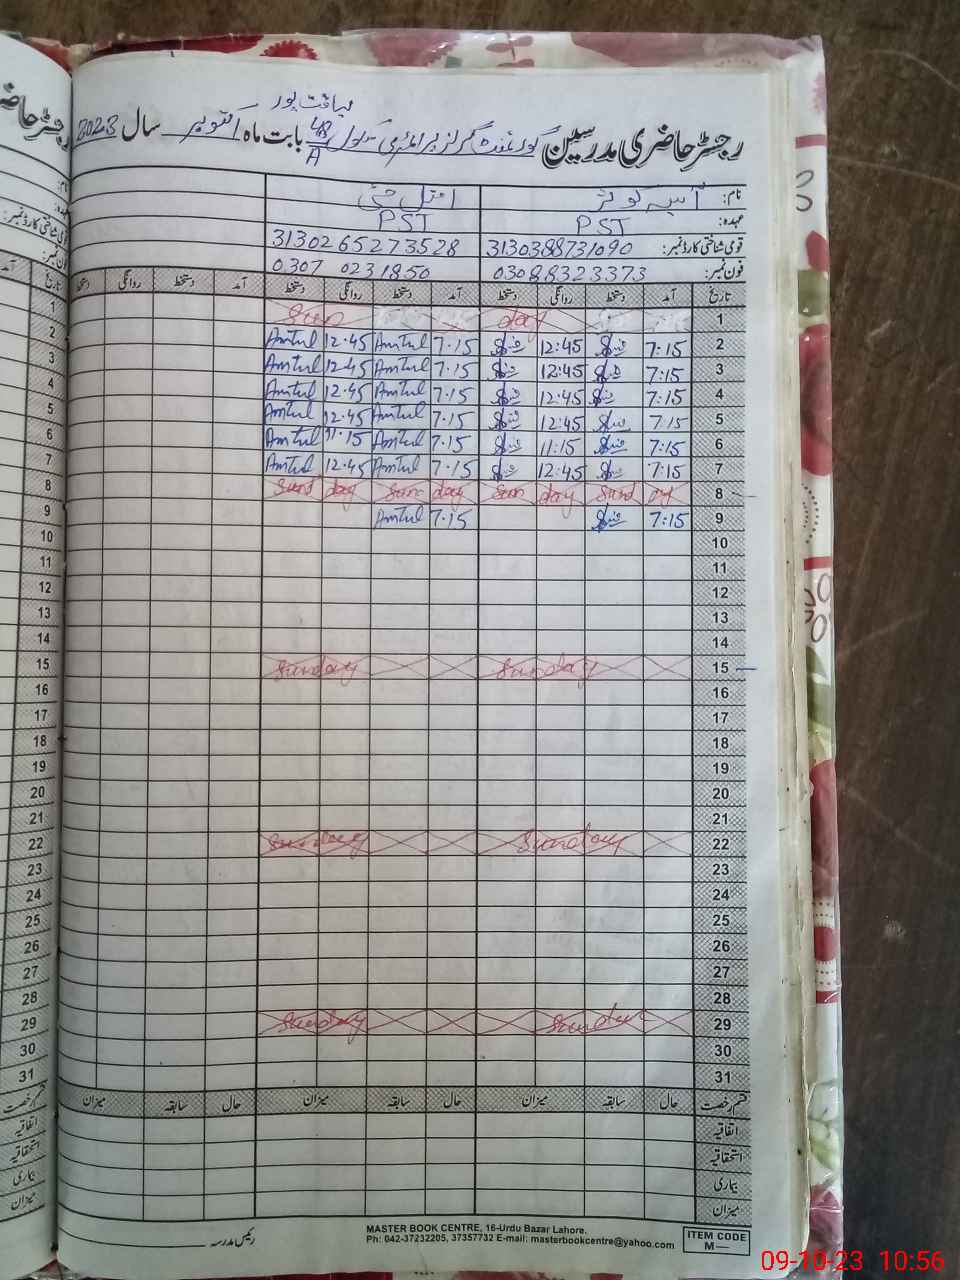 لیاقت پور
رجسٹر حاضری مدرسین گورنمنٹ گرلز پرائمری سکول 48/A بابت ماہ اکتوبر سال 2023
نام: آسیہ کوثر امتل حئی
عہدہ: PST PST
قومی شناختی کارڈ نمبر: 3130388731090 3130265273528
فون نمبر: 03088323373 0307 0231850
تاریخ آمد دستخط روانگی دستخط آمد دستخط روانگی دستخط آمد دستخط روانگی دستخط
1 day Sun
2 7:15 12:45 7.15 Amtul 12.45 Amtul
3 7:15 12:45 7.15 Amtul 12.45 Amtul
4 7:15 12:45 7.15 Amtul 12.45 Amtul
5 7:15 12:45 7.15 Amtul 12.45 Amtul
6 7:15 11:15 7.15 Amtul 11.15 Amtul
7 7:15 12:45 7.15 Amtul 12.45 Amtul
8 Sund ay Sun day Sun day Sund day
9 7:15 7.15 Amtul
10
11
12
13
14
15 Sunday Sunday
16
17
18
19
20
21
22 Sunday Sunday
23
24
25
26
27
28
29 Sunday Sunday
30
31
قسم رخصت حال سابقہ میزان حال سابقہ میزان حال سابقہ میزان
اتفاقیہ
استحقاقیہ
بیماری
میزان
رئیس مدرسہ
MASTER BOOK CENTRE, 16-Urdu Bazar Lahore.
Ph: 042-37232205, 37357732 E-mail: masterbookcentre@yahoo.com
ITEM CODE
M—
09-10-23 10:56